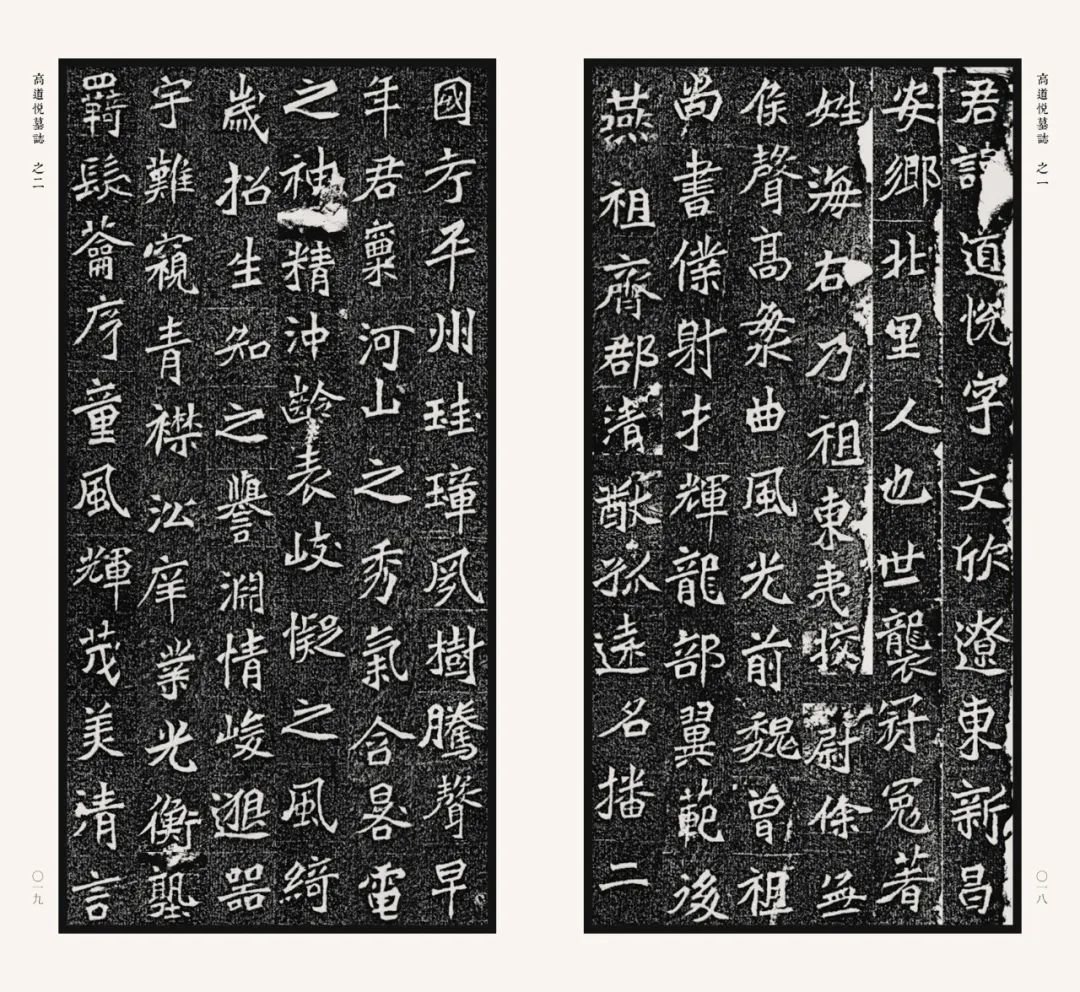 高道悦墓誌 之一
君諱道悅字文欣遼東新昌
安鄉北里人也世襲冠冕著
姓海右乃祖東夷挍尉徐無
侯聲高曲風光前魏曾祖
尚書僕射才輝龍部翼範後
燕祖齊郡清猷孤遠名播二
〇一八
國考平州珪璋夙樹騰聲早
年君稟河山之秀氣含晷電
之神精沖齡表岐嶷之風綺
歲招生知之譽淵情峻邈器
宇難窺青襟泓庠業光衡塾
羈髮蘥序童風輝茂美清言
高道悦墓誌 之二
〇一九